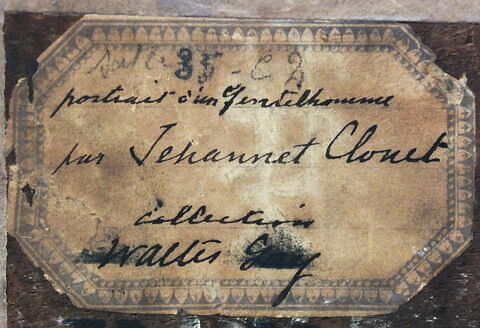 35-
portrait d'un Gentelhomme
par Jehannet Clouet
collection
Walter Gay